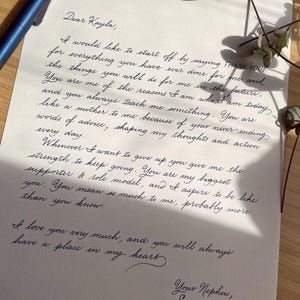 Dear Kayla,
I would like to start off by saying THANK YOU
for everything you have ever done for me and
the things you will do for me in the future.
You are one of the reasons I am who I am today,
and you always teach me something. You are
like a mother to me because of your never-ending
words of advice, shaping my thoughts and action
every day.
Whenever I want to give up you give me the
strength to keep going. You are my biggest
supporter & role model, and I aspire to be like
you. You mean so much to me, probably more
than you know.
I love you very much, and you will always
have a place in my heart
Your Nephew,